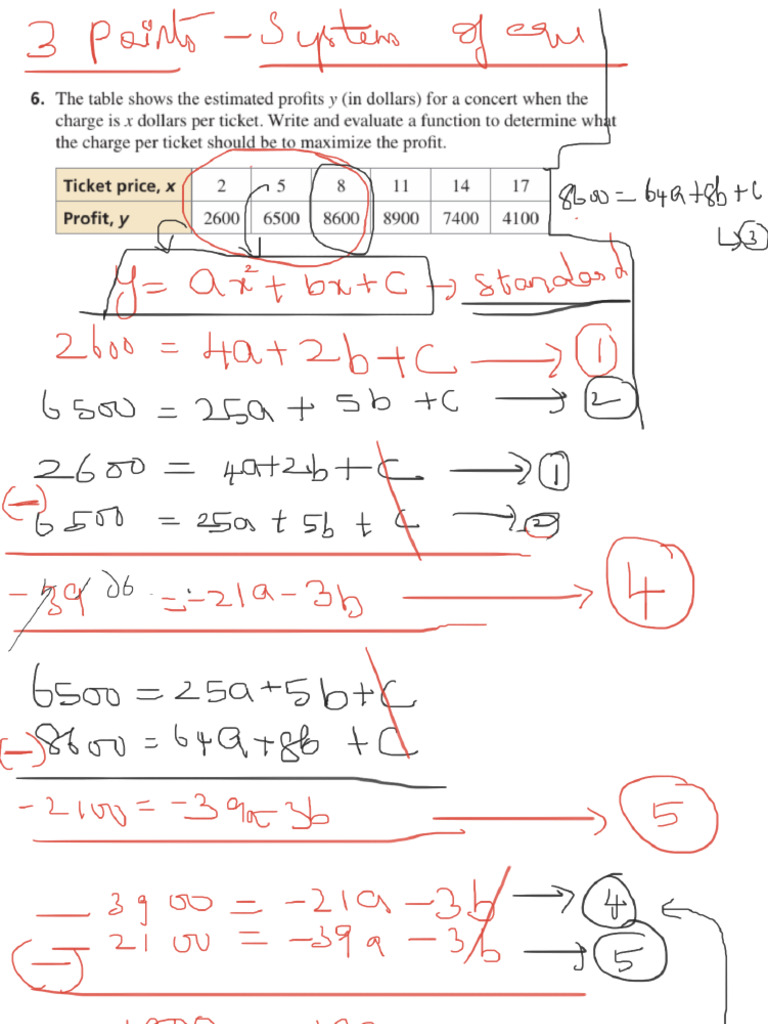 3 Points - System of equ
6. The table shows the estimated profits y (in dollars) for a concert when the
charge is x dollars per ticket. Write and evaluate a function to determine what
the charge per ticket should be to maximize the profit.
Ticket price, x 2 5 8 11 14 17
Profit, y 2600 6500 8600 8900 7400 4100
8600 = 64a+8b+c
↳ 3
y = ax² + bx + c → standard
2600 = 4a + 2b + c → 1
6500 = 25a + 5b + c → 2
2600 = 4a+2b+c → 1
(-) 6500 = 25a + 5b + c → 2
= -21a - 3b → 4
6500 = 25a+5b+c
(-) 8600 = 64a+8b + c
-2100 = -39a-3b → 5
- 3900 = -21a - 3b → 4
(-) - 2100 = -39a - 3b → 5